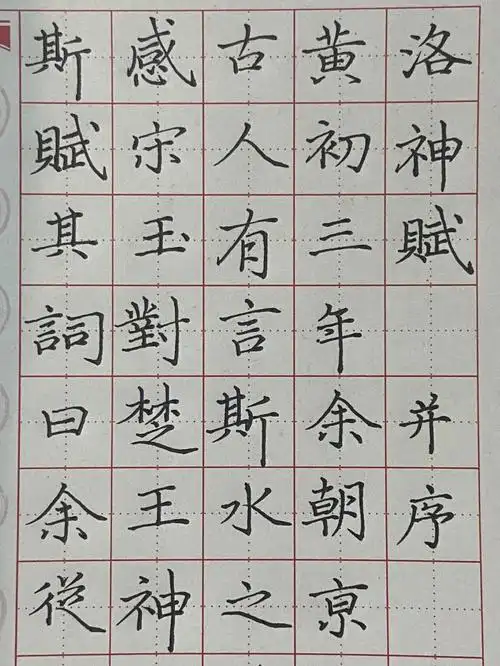 洛神賦 并序
黄初三年余朝京
古人有言斯水之
感宋玉對楚王神
斯賦其詞曰余從